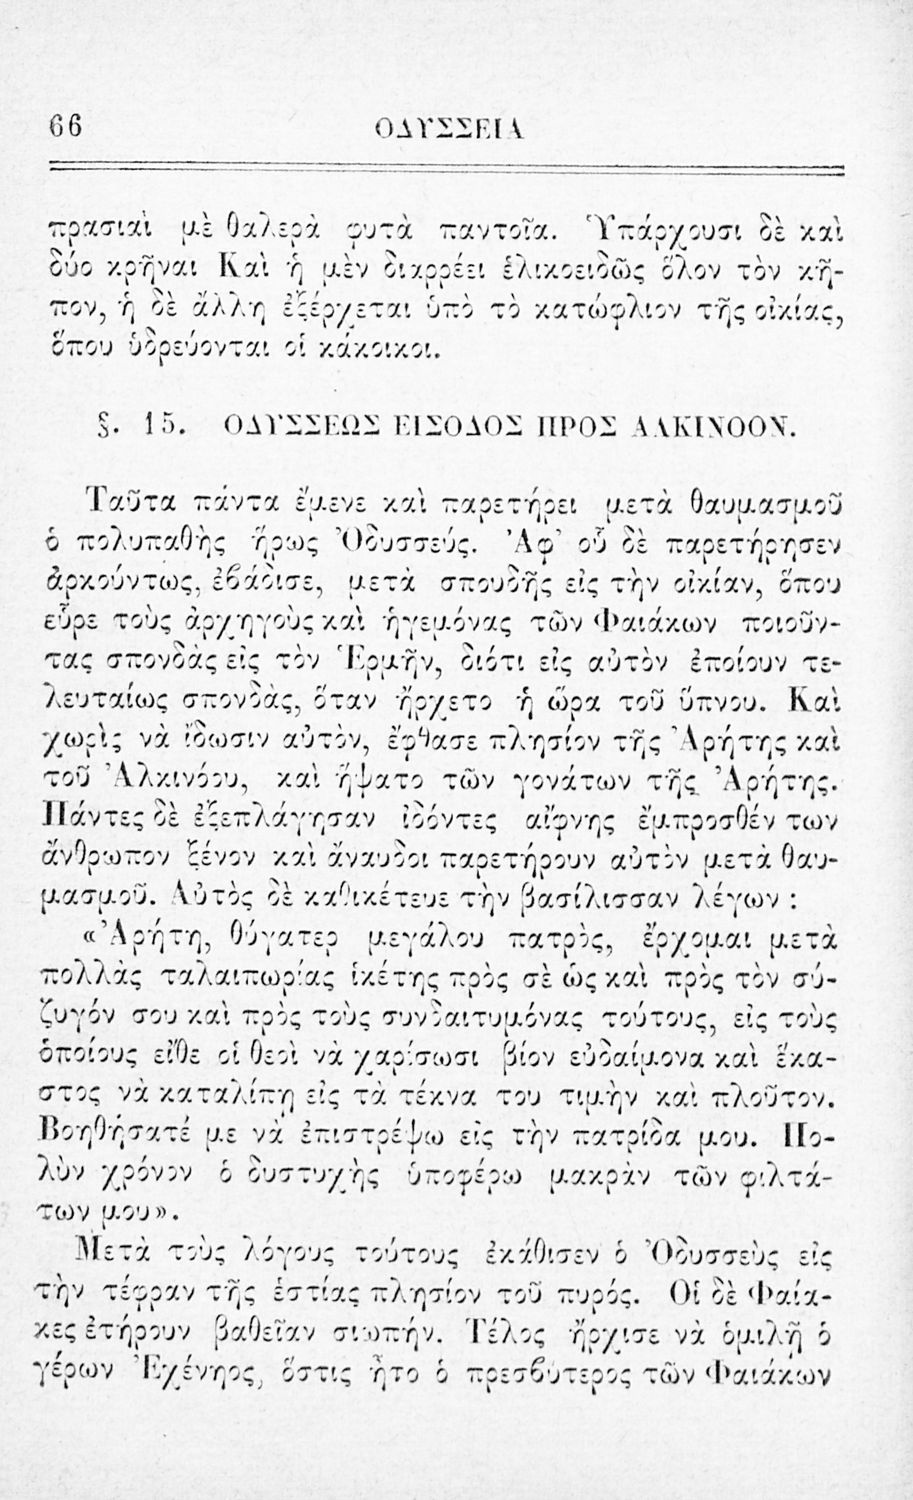 66 ΟΔΥΣΣΕΙΑ
πρασιαὶ μὲ θαλερὰ φυτὰ παντοῖα. Ὑπάρχουσι δὲ καὶ
δύο κρῆναι Καὶ ἡ μὲν διαρρέει ἑλικοειδῶς ὅλον τὸν κῆ-
πον, ἡ δὲ ἄλλη ἐξέρχεται ὑπὸ τὸ κατώφλιον τῆς οἰκίας,
ὅπου ὑδρεύονται οἱ κάκοικοι.
§. 15. ΟΔΥΣΣΕΩΣ ΕΙΣΟΔΟΣ ΠΡΟΣ ΑΛΚΙΝΟΟΝ.
Ταῦτα πάντα ἔμενε καὶ παρετήρει μετὰ θαυμασμοῦ
ὁ πολυπαθὴς ἥρως Ὀδυσσεύς. Ἀφ' οὗ δὲ παρετήρησεν
ἀρκούντως, ἐβάδισε, μετὰ σπουδῆς εἰς τὴν οἰκίαν, ὅπου
εὗρε τοὺς ἀρχηγοὺς καὶ ἡγεμόνας τῶν Φαιάκων ποιοῦν-
τας σπονδὰς εἰς τὸν Ἑρμῆν, διότι εἰς αὐτὸν ἐποίουν τε-
λευταίως σπονδὰς, ὅταν ἤρχετο ἡ ὥρα τοῦ ὕπνου. Καὶ
χωρὶς νὰ ἴδωσιν αὐτὸν, ἔφθασε πλησίον τῆς Ἀρήτης καὶ
τοῦ Ἀλκινόου, καὶ ἥψατο τῶν γονάτων τῆς Ἀρήτης.
Πάντες δὲ ἐξεπλάγησαν ἰδόντες αἴφνης ἔμπροσθέν των
ἄνθρωπον ξένον καὶ ἄναυδοι παρετήρουν αὐτὸν μετὰ θαυ-
μασμοῦ. Αὐτὸς δὲ καθικέτευε τὴν βασίλισσαν λέγων :
«Ἀρήτη, θύγατερ μεγάλου πατρὸς, ἔρχομαι μετὰ
πολλὰς ταλαιπωρίας ἱκέτης πρὸς σὲ ὡς καὶ πρὸς τὸν σύ-
ζυγόν σου καὶ πρὸς τοὺς συνδαιτυμόνας τούτους, εἰς τοὺς
ὁποίους εἴθε οἱ θεοὶ νὰ χαρίσωσι βίον εὐδαίμονα καὶ ἕκα-
στος νὰ καταλίπῃ εἰς τὰ τέκνα του τιμὴν καὶ πλοῦτον.
Βοηθήσατέ με νὰ ἐπιστρέψω εἰς τὴν πατρίδα μου. Πο-
λὺν χρόνον ὁ δυστυχὴς ὑποφέρω μακρὰν τῶν φιλτά-
των μου».
Μετὰ τοὺς λόγους τούτους ἐκάθισεν ὁ Ὀδυσσεὺς εἰς
τὴν τέφραν τῆς ἑστίας πλησίον τοῦ πυρός. Οἱ δὲ Φαία-
κες ἐτήρουν βαθεῖαν σιωπήν. Τέλος ἤρχισε νὰ ὁμιλῇ ὁ
γέρων Ἐχένηος, ὅστις ἦτο ὁ πρεσβύτερος τῶν Φαιάκων